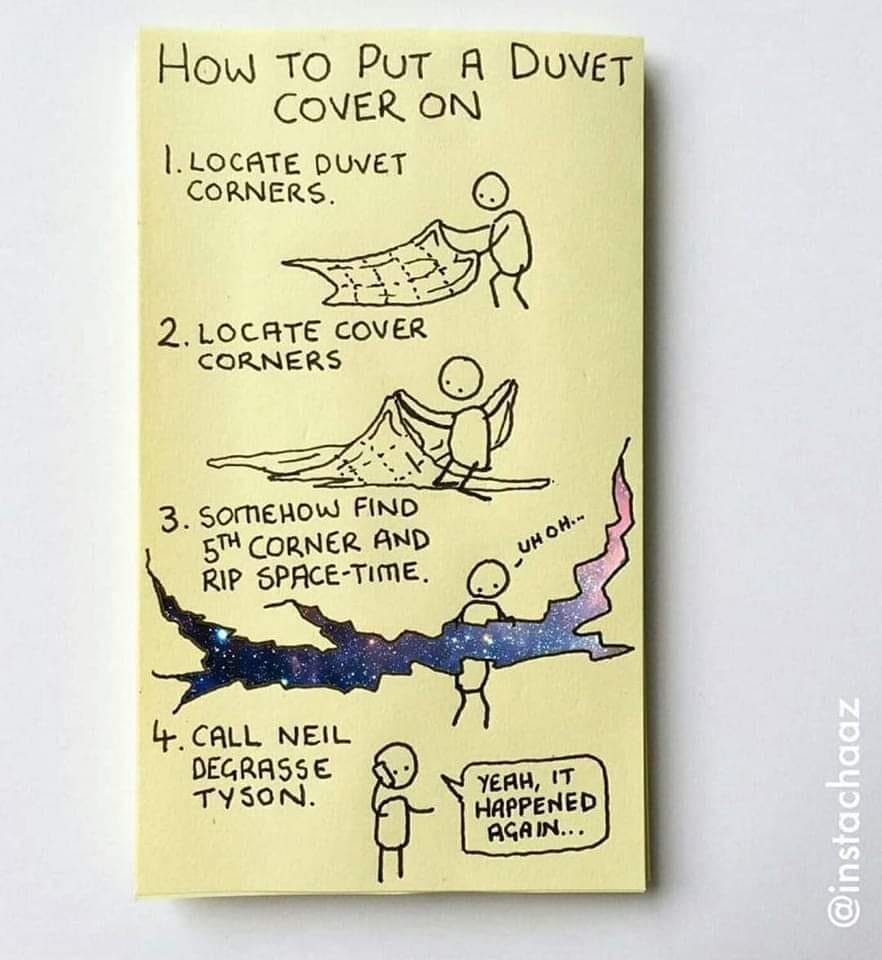 HOW TO PUT A DUVET
COVER ON
1. LOCATE DUVET
CORNERS.
2. LOCATE COVER
CORNERS
3. SOMEHOW FIND
5TH CORNER AND
RIP SPACE-TIME.
UH OH...
4. CALL NEIL
DEGRASSE
TYSON.
YEAH, IT
HAPPENED
AGAIN...
@instachaaz